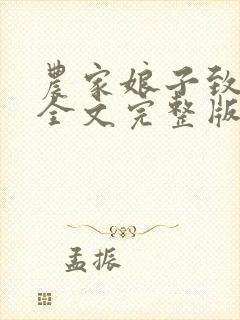 農家娘子致
全文完整版
孟振